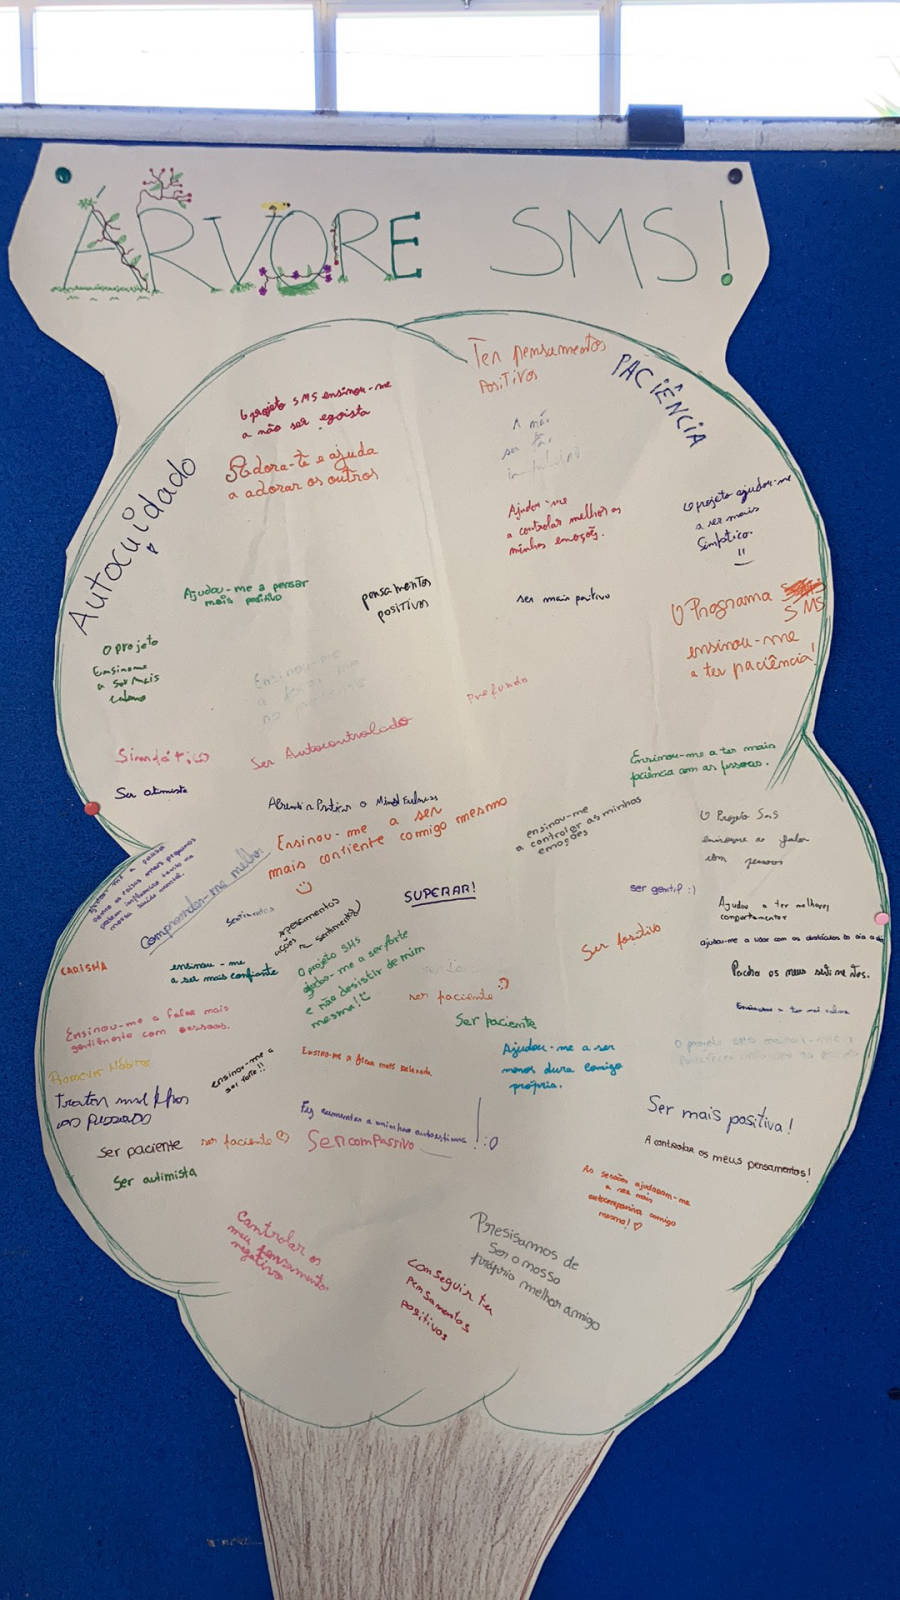 ÁRVORE SMS!
Ter pensamentos
Positivos
PACIÊNCIA
O projeto SMS ensinou-me
a não ser egoista
Adora-te e ajuda
a adorar os outros
Autocuidado
A não
ser tão
Ajudou-me
a controlar melhor as
minhas emoções.
O projeto ajudou-me
a ser mais
Simpático.
Ajudou-me a pensar
mais positivo
pensamentos
positivos
ser mais positivo
O Programa SMS
ensinou-me
a ter paciência!
O projeto
Ensinome
a Ser Mais
calmo
Ensinou-me
Profundo
Ser Autocontrolado
Ser otimista
Ensinou-me a ter mais
paciência com as pessoas.
Aprendi Praticar o MindFulness
Ensinou-me a ser
mais confiente comigo mesmo
ensinou-me
a controlar as minhas
emoções
O Projeto SMS
ensinome a falar
com pessoas
Compreender-me melhor
SUPERAR!
ser gentil :)
Sentimentos
pensamentos
ações e sentimentos
Ajudou a ter melhores
comportamentos
Ser positivo
ajudou-me a lidar com os obstáculos do dia a dia
CARISMA
ensinou-me
a ser mais confiante
O projeto SMS
ajudou-me a ser forte
e não desistir de mim
mesma!
os meus
ser paciente
Ser paciente
Ensinou-me a falar mais
gentilmente com pessoas.
Ensinou-me a ficar mais
Ajudou-me a ser
menos dura comigo
própria.
O projeto
ensinou-me a
ser forte!!
Tratar melhor
as pessoas
Fez aumentar a minha autoestima! :O
Ser mais positiva!
Ser paciente
ser paciente
Ser compassivo
A controlar os meus pensamentos!
Ser autimista
As sessões ajudaram-me
a ser mais
comigo
mesma!
Controlar os
meus pensamentos
negativos
Presisamos de
Ser o nosso
próprio melhor amigo
Conseguir ter
pensamentos
positivos